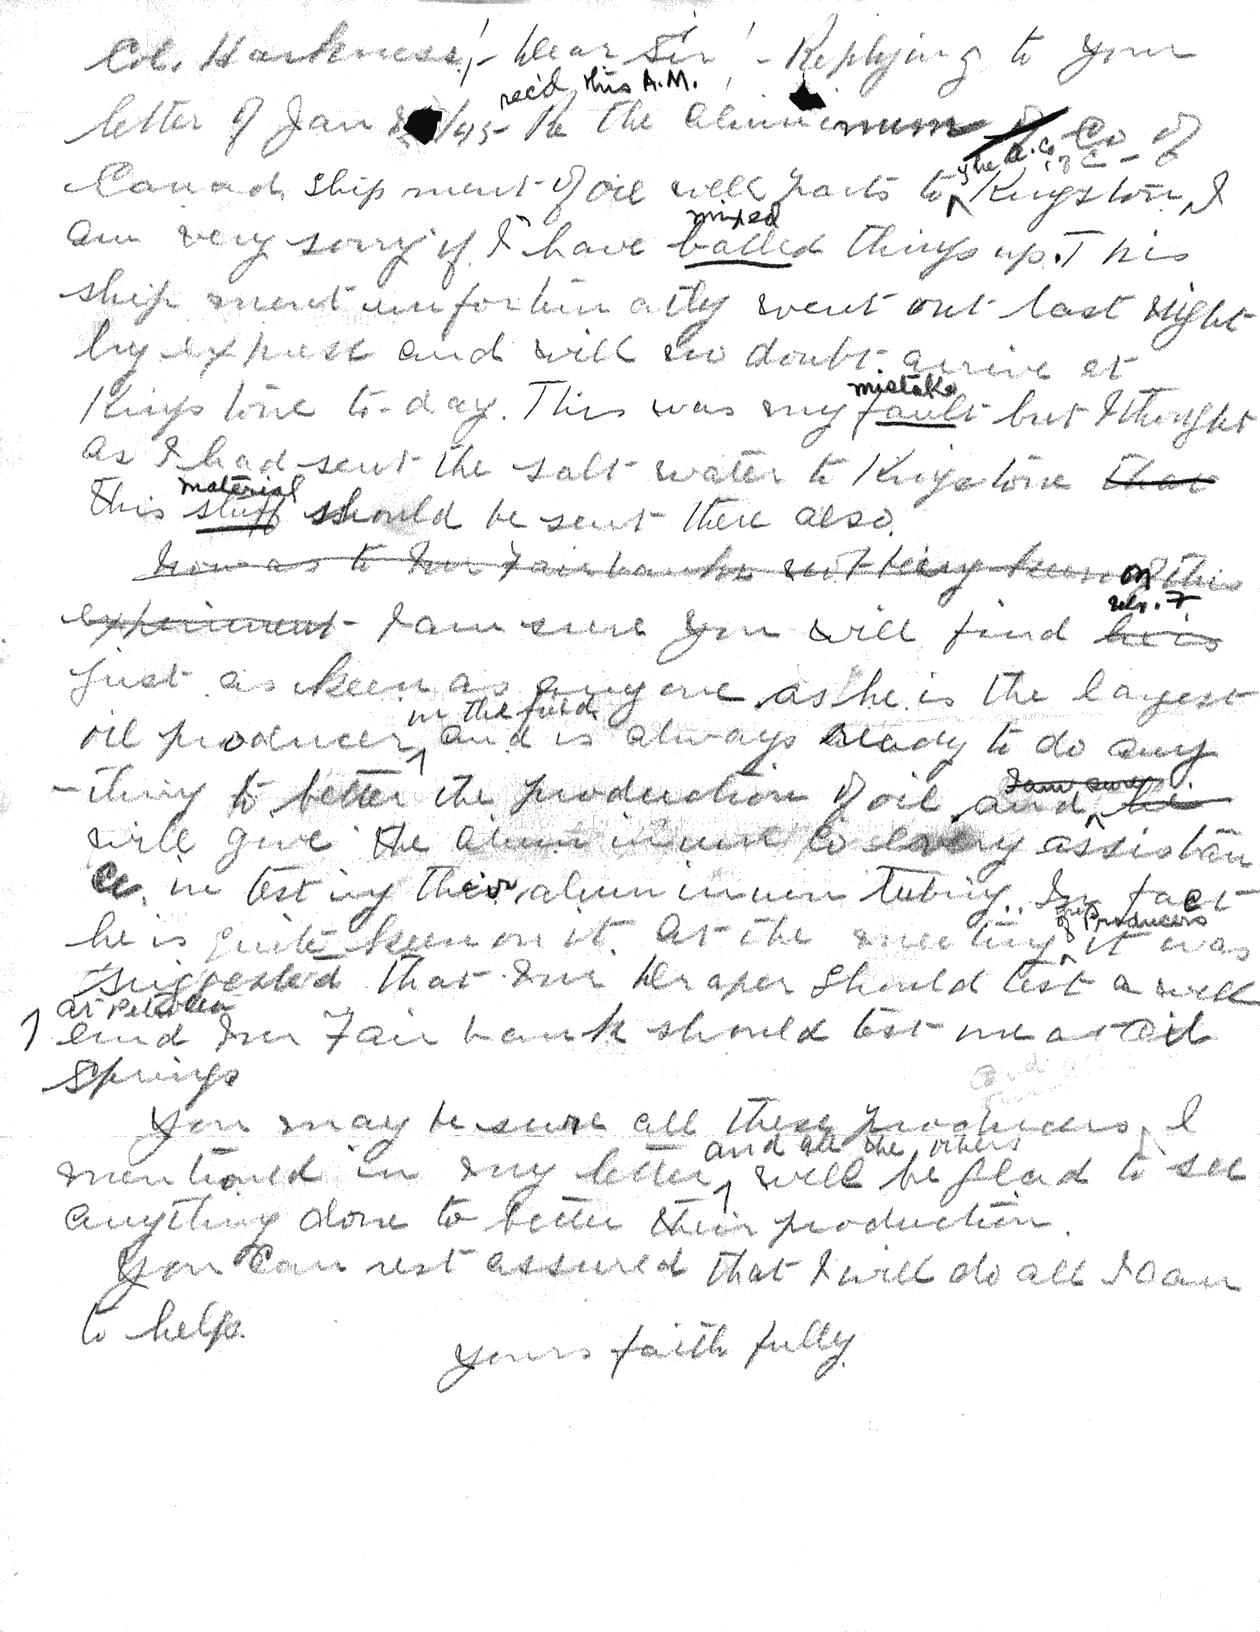 Col. Harkness, - Dear Sir! - Replying to your
rec'd this A.M.
letter of Jan /45 - Re the Aluminum Co of
the A. Co of C -
Canada shipment of oil well parts to Kingston, I
mixed
am very sorry if I have balled things up. This
ship ment unfortunatly went out last night
by express and will no doubt arrive at
mistake
Kingstone to-day. This was my fault but I thought
as I had sent the salt water to Kingstone that
material
this stuff should be sent there also.
Now as to Mr Fairbanks not being keen on this
experiment - I am sure you will find he is
Mr. F
just as keen as anyone as he is the largest
in the field
oil producer and is always ready to do any
-thing to better the production of oil and he
I am sure
will give the aluminum Co every assistan
ce. in testing their aluminum tubing. In fact
he is quite keen on it. At the meeting it was
of producers
suggested that Mr Draper should test a well
at Petrolia
and Mr Fairbank should test one at Oil
Springs
You may be sure all these producers I
and all the others
mentioned in my letter will be glad to see
anything done to better their production.
You can rest assured that I will do all I can
to help.
Yours faithfully